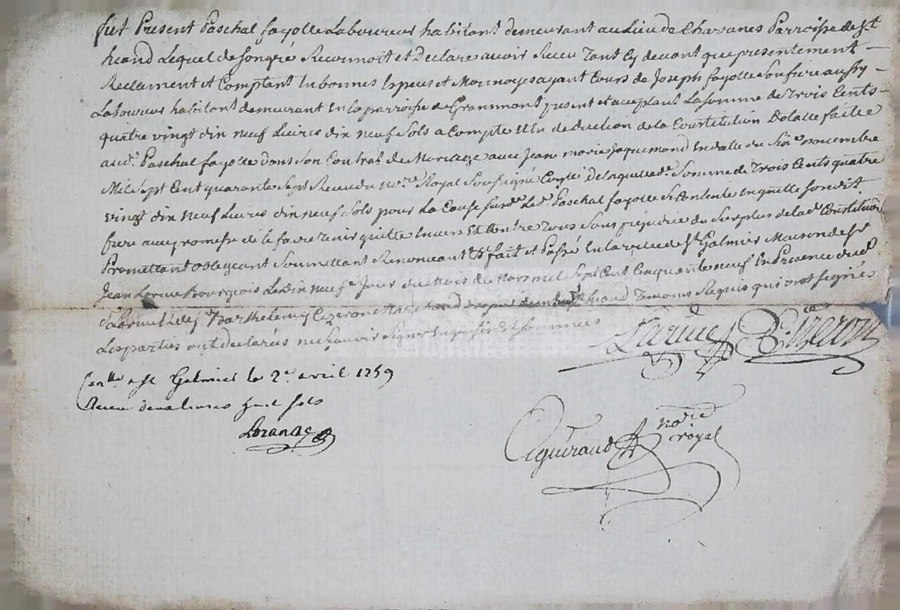 fut Present Paschal fayolle Laboureur habitant demeurant au Lieu de Charanes Parroisse de St
heand Lequel de son gré Reconnoit et Declare avoir Receu Tant Cy devant que presentement
Reelement et Comptant En bonnes Especes et Monnoyes ayant Cours de Joseph fayolle Son frere aussy
Laboureur habitant demeurant En la parroisse de Grammont present et acceptant La Somme de Trois Cents
quatre vingt dix neuf Livres dix neuf Sols a Compte de la Constitution Dotalle faitte
aud. Paschal fayolle dans Son Contrat de Mariage avec Jean marie Jaquemond En datte du novembre
Mil Sept Cent quarante Sept Receu du nore Royal Soussigné De laquelle Somme de Trois Cents quatre
vingt dix neuf Livres dix neuf Sols pour La Cause Susd. Led. Paschal fayolle Se Contente En quitte Sondit
frere avec promesse de le faire Tenir quitte Envers Et Contre Tous Sous prejudice du Surplus de lad. Constitution
Promettant obligeant Soumettant Renonceant Fait et Passé En la ville de St Galmier Maison de Sr
Jean Larue Bourgeois Le Dix neufe Jour du Mois de Mars mil Sept Cent Cinquante neuf En Presence dud.
Sr Larue et de Sr Barthelemy Cizeron heand Temoins Requis qui ont Signés
Les parties ont declarés ne Sçavoir Signer Enquis Et Sommés
Larue Cizeron
Conlle a St Galmier le 2e avril 1759
Receu deux livres huit sols
Loranze
nore
royal